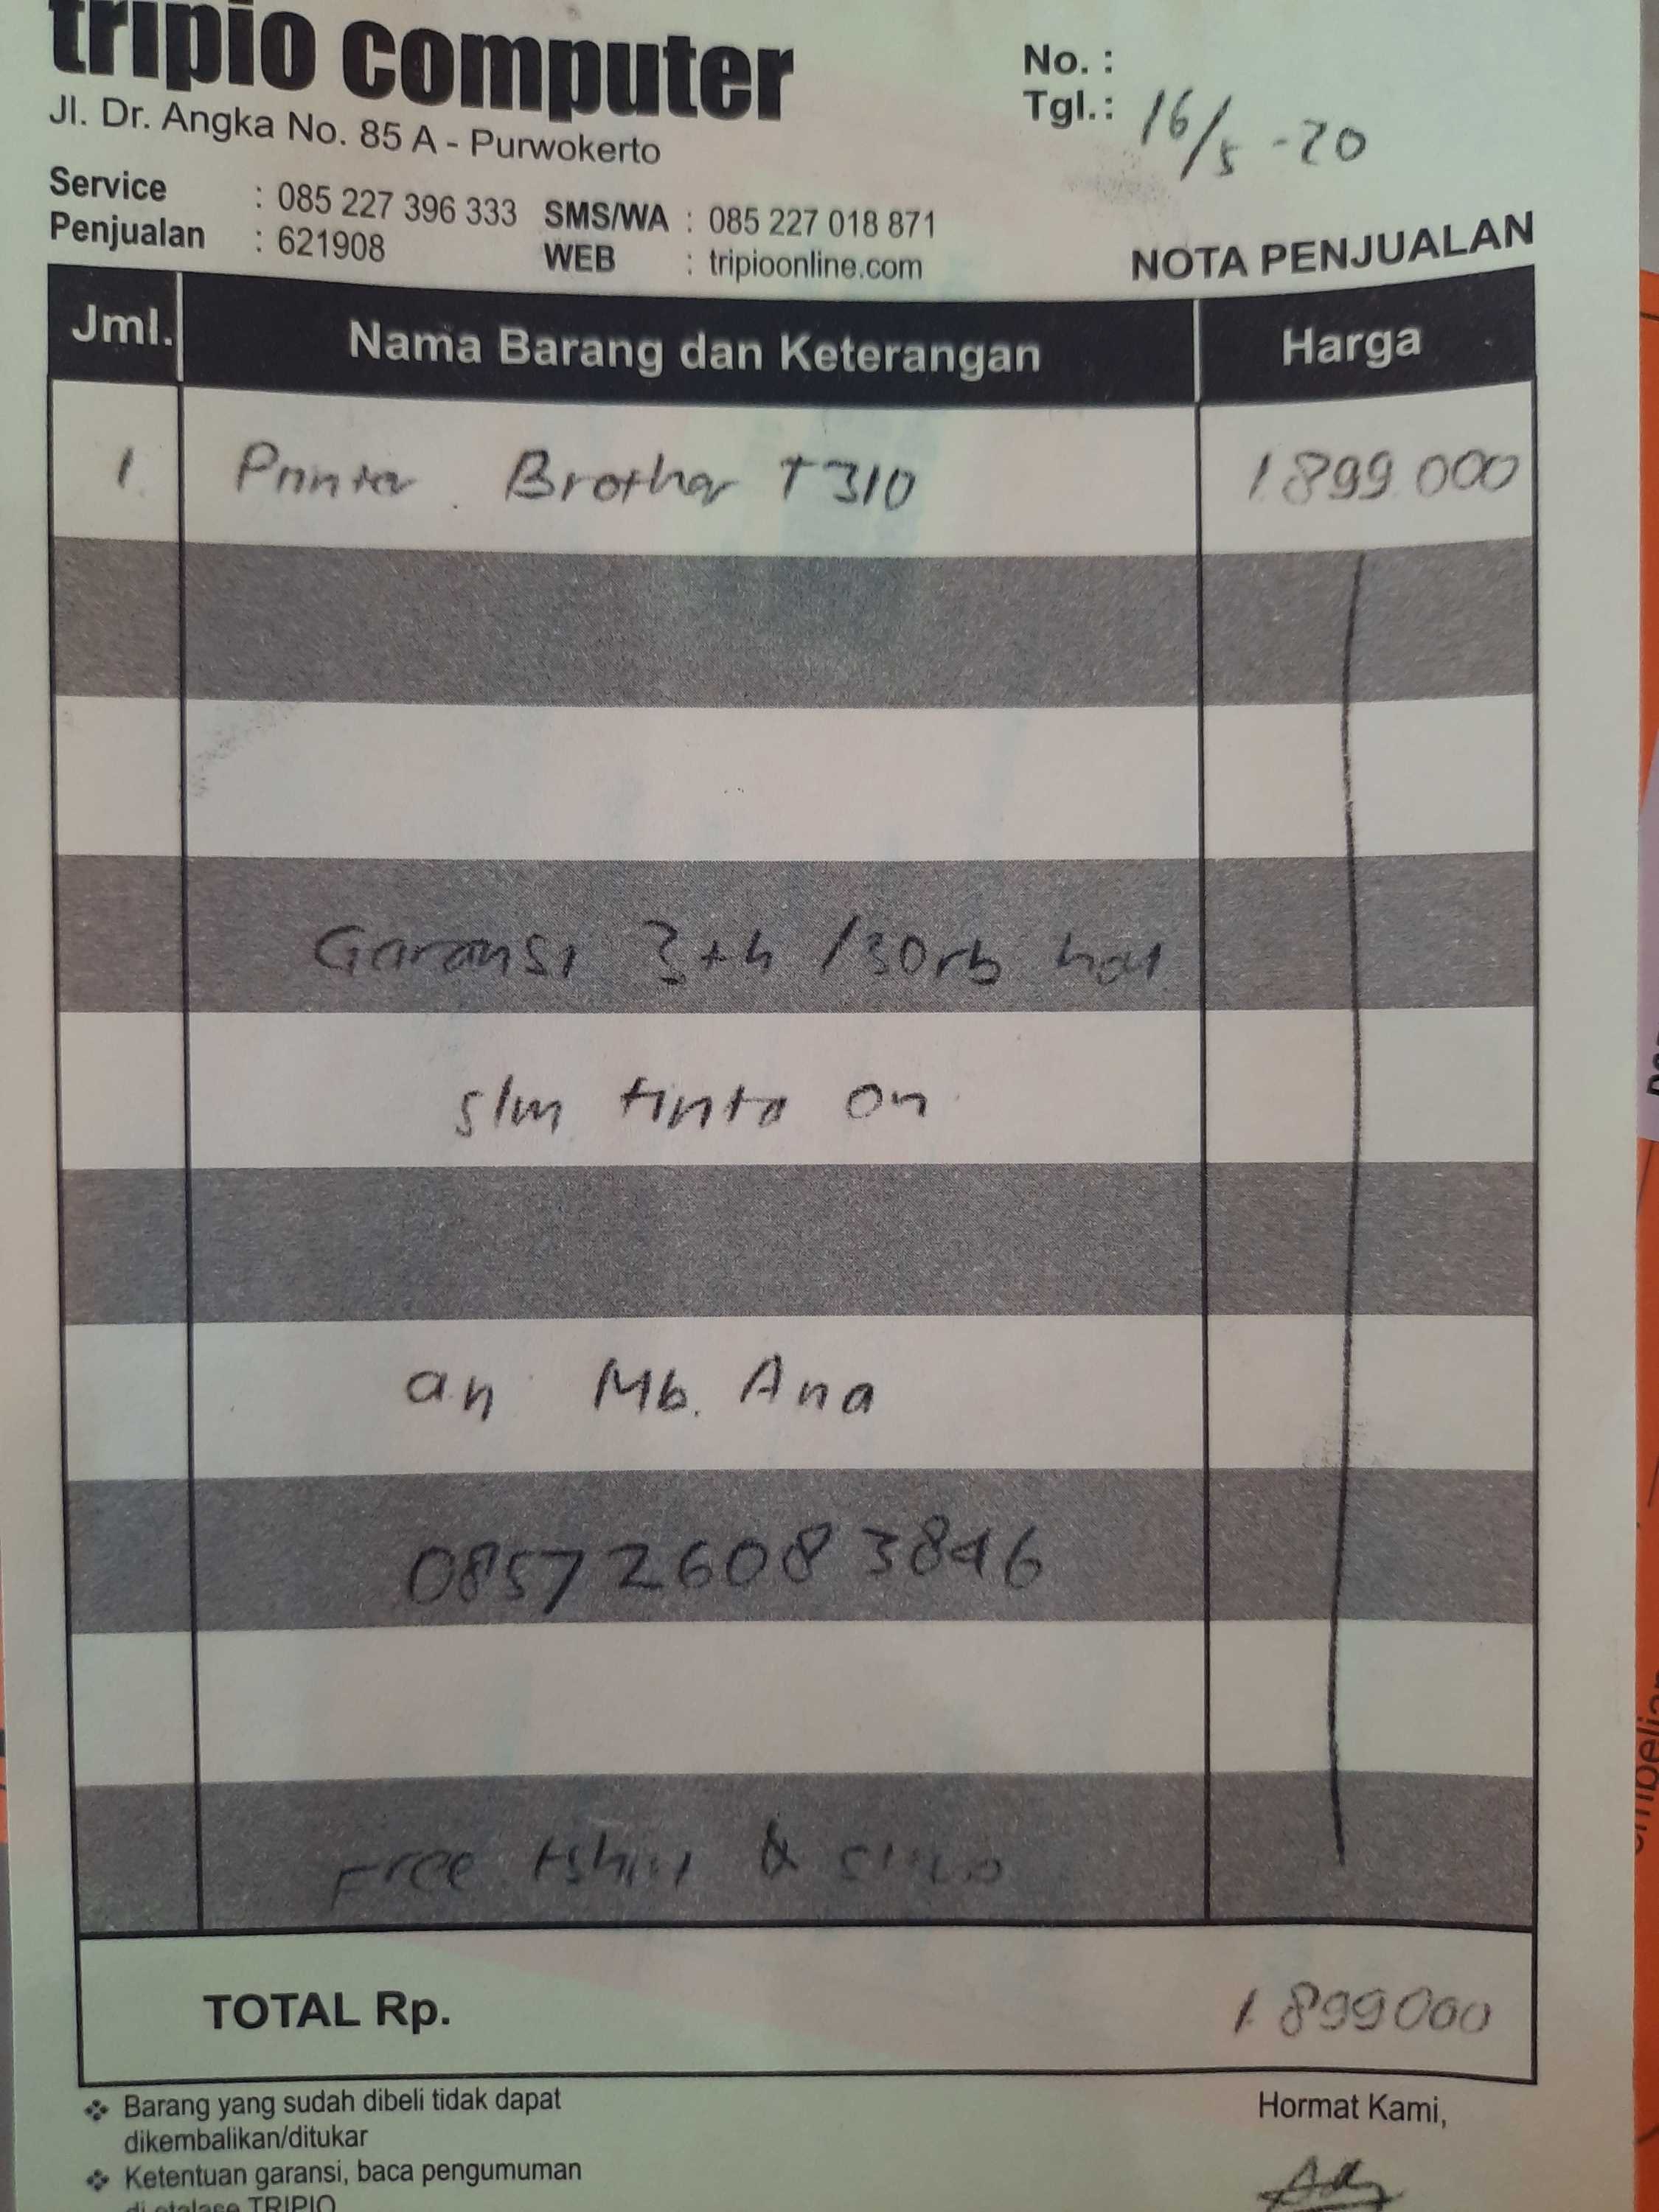 tripio computer
Jl. Dr. Angka No. 85 A - Purwokerto
Service : 085 227 396 333 SMS/WA : 085 227 018 871
Penjualan : 621908 WEB : tripioonline.com
No. :
Tgl. : 16/5 -20
NOTA PENJUALAN
Jml. Nama Barang dan Keterangan Harga
1. Printer Brother T310 1.899.000
Garansi 3th /30rb hal
slm tinta ori
an Mb. Ana
085726083846
Free tshirt &
TOTAL Rp. 1.899000
❖ Barang yang sudah dibeli tidak dapat
dikembalikan/ditukar
❖ Ketentuan garansi, baca pengumuman
di etalase TRIPIO
Hormat Kami,